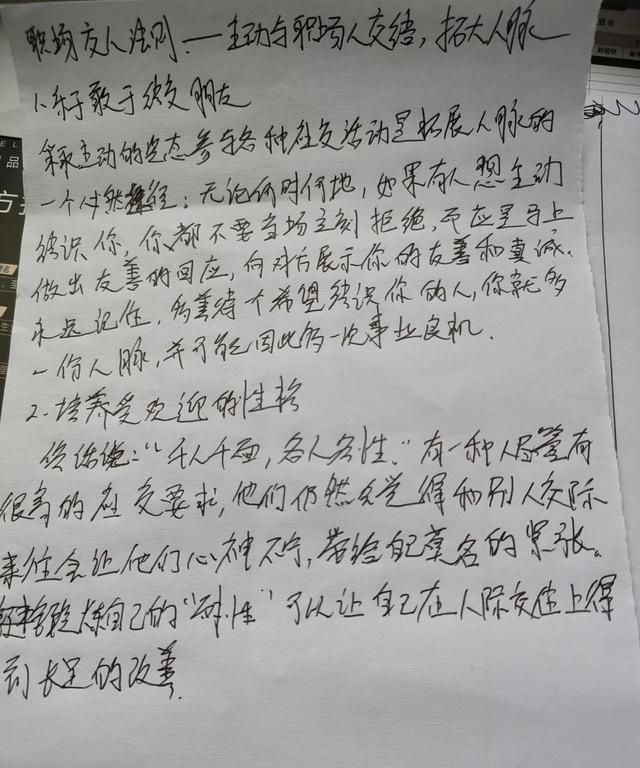 职场交人法则——主动与职场人交结，拓大人脉
1.乐于敢于结交朋友
采取主动的姿态参与各种社交活动是拓展人脉的
一个必然途径；无论何时何地，如果有人想主动
结识你，你都不要当场立刻拒绝，而应是马上
做出友善的回应，向对方展示你的友善和真诚.
永远记住，多善待个希望结识你的人，你就多
一份人脉，并可能因此多一次事业良机.
2.培养受欢迎的性格
俗话说："千人千面，各人各性."有一种人尽管有
很高的社交要求，他们仍然会觉得和别人交际
来往会让他们心神不宁，带给自己莫名的紧张。
锻炼自己的"耐性"可以让自己在人际交往上得
到长足的改善.